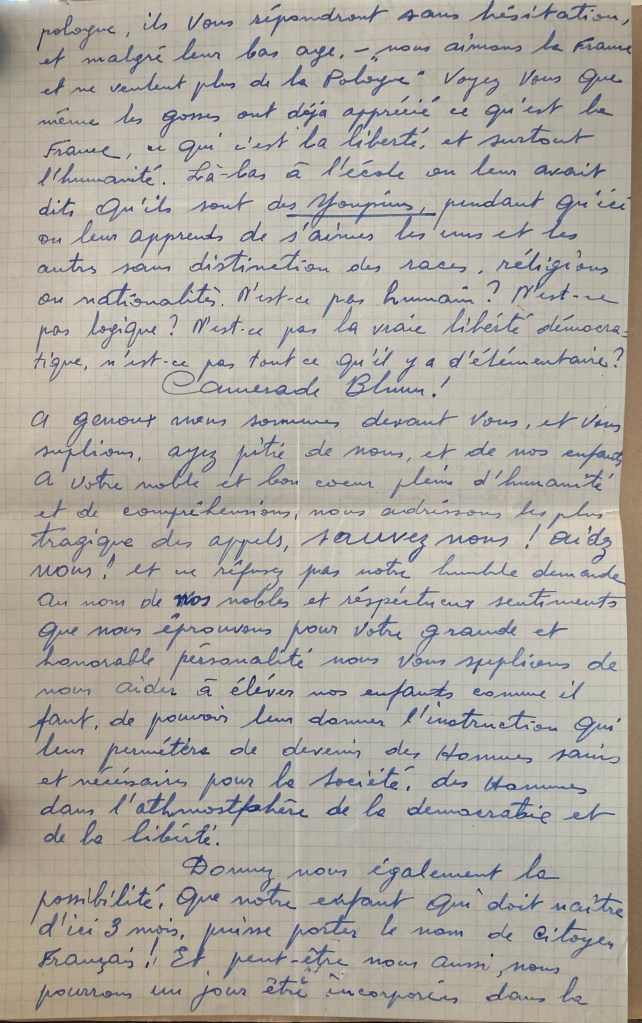 pologne, ils Vous répondront sans hésitation,
et malgré leur bas age. – „nous aimons la France
et ne veulent plus de la Pologne" Voyez Vous que
même les gosses ont déja apprécié ce qu'est la
France, ce qui c'est la liberté, et surtout
l'humanité. Là-bas à l'école on leur avait
dits qu'ils sont des Youpins, pendant qu'ici
on leur apprends de s'aimer les uns et les
autres sans distinction des races, réligions
ou nationalités. N'est-ce pas humain? N'est-ce
pas logique? N'est-ce pas la vraie libérté démocra-
tique, n'est-ce pas tout ce qu'il y a d'élémentaire?
Camerade Blum!
A genoux nous sommes devant Vous, et Vous
suplions, ayez pitié de nous, et de nos enfants
A votre noble et bon coeur plein d'humanité
et de compréhensions, nous adréssons les plus
tragique des appels, sauvez nous! aidez
nous! et ne réfusez pas notre humble demande
au nom de nos nobles et réspéctueux sentiments
que nous éprouvons pour Votre grande et
honorable pérsonalité nous Vous supplions de
nous aider à éléver nos enfants comme il
faut, de pouvoir leur donner l'instruction qui
leur permétéra de devenir des Hommes sains
et nécésaires pour la société, des Hommes
dans l'athmostphère de la democratie et
de la libérté.
Donnez nous également la
possibilité, que notre enfant qui doit naître
d'ici 3 mois, puisse porter le nom de Citoyen
Français! Et peut-être nous aussi, nous
pourrons un jour être incorporés dans la